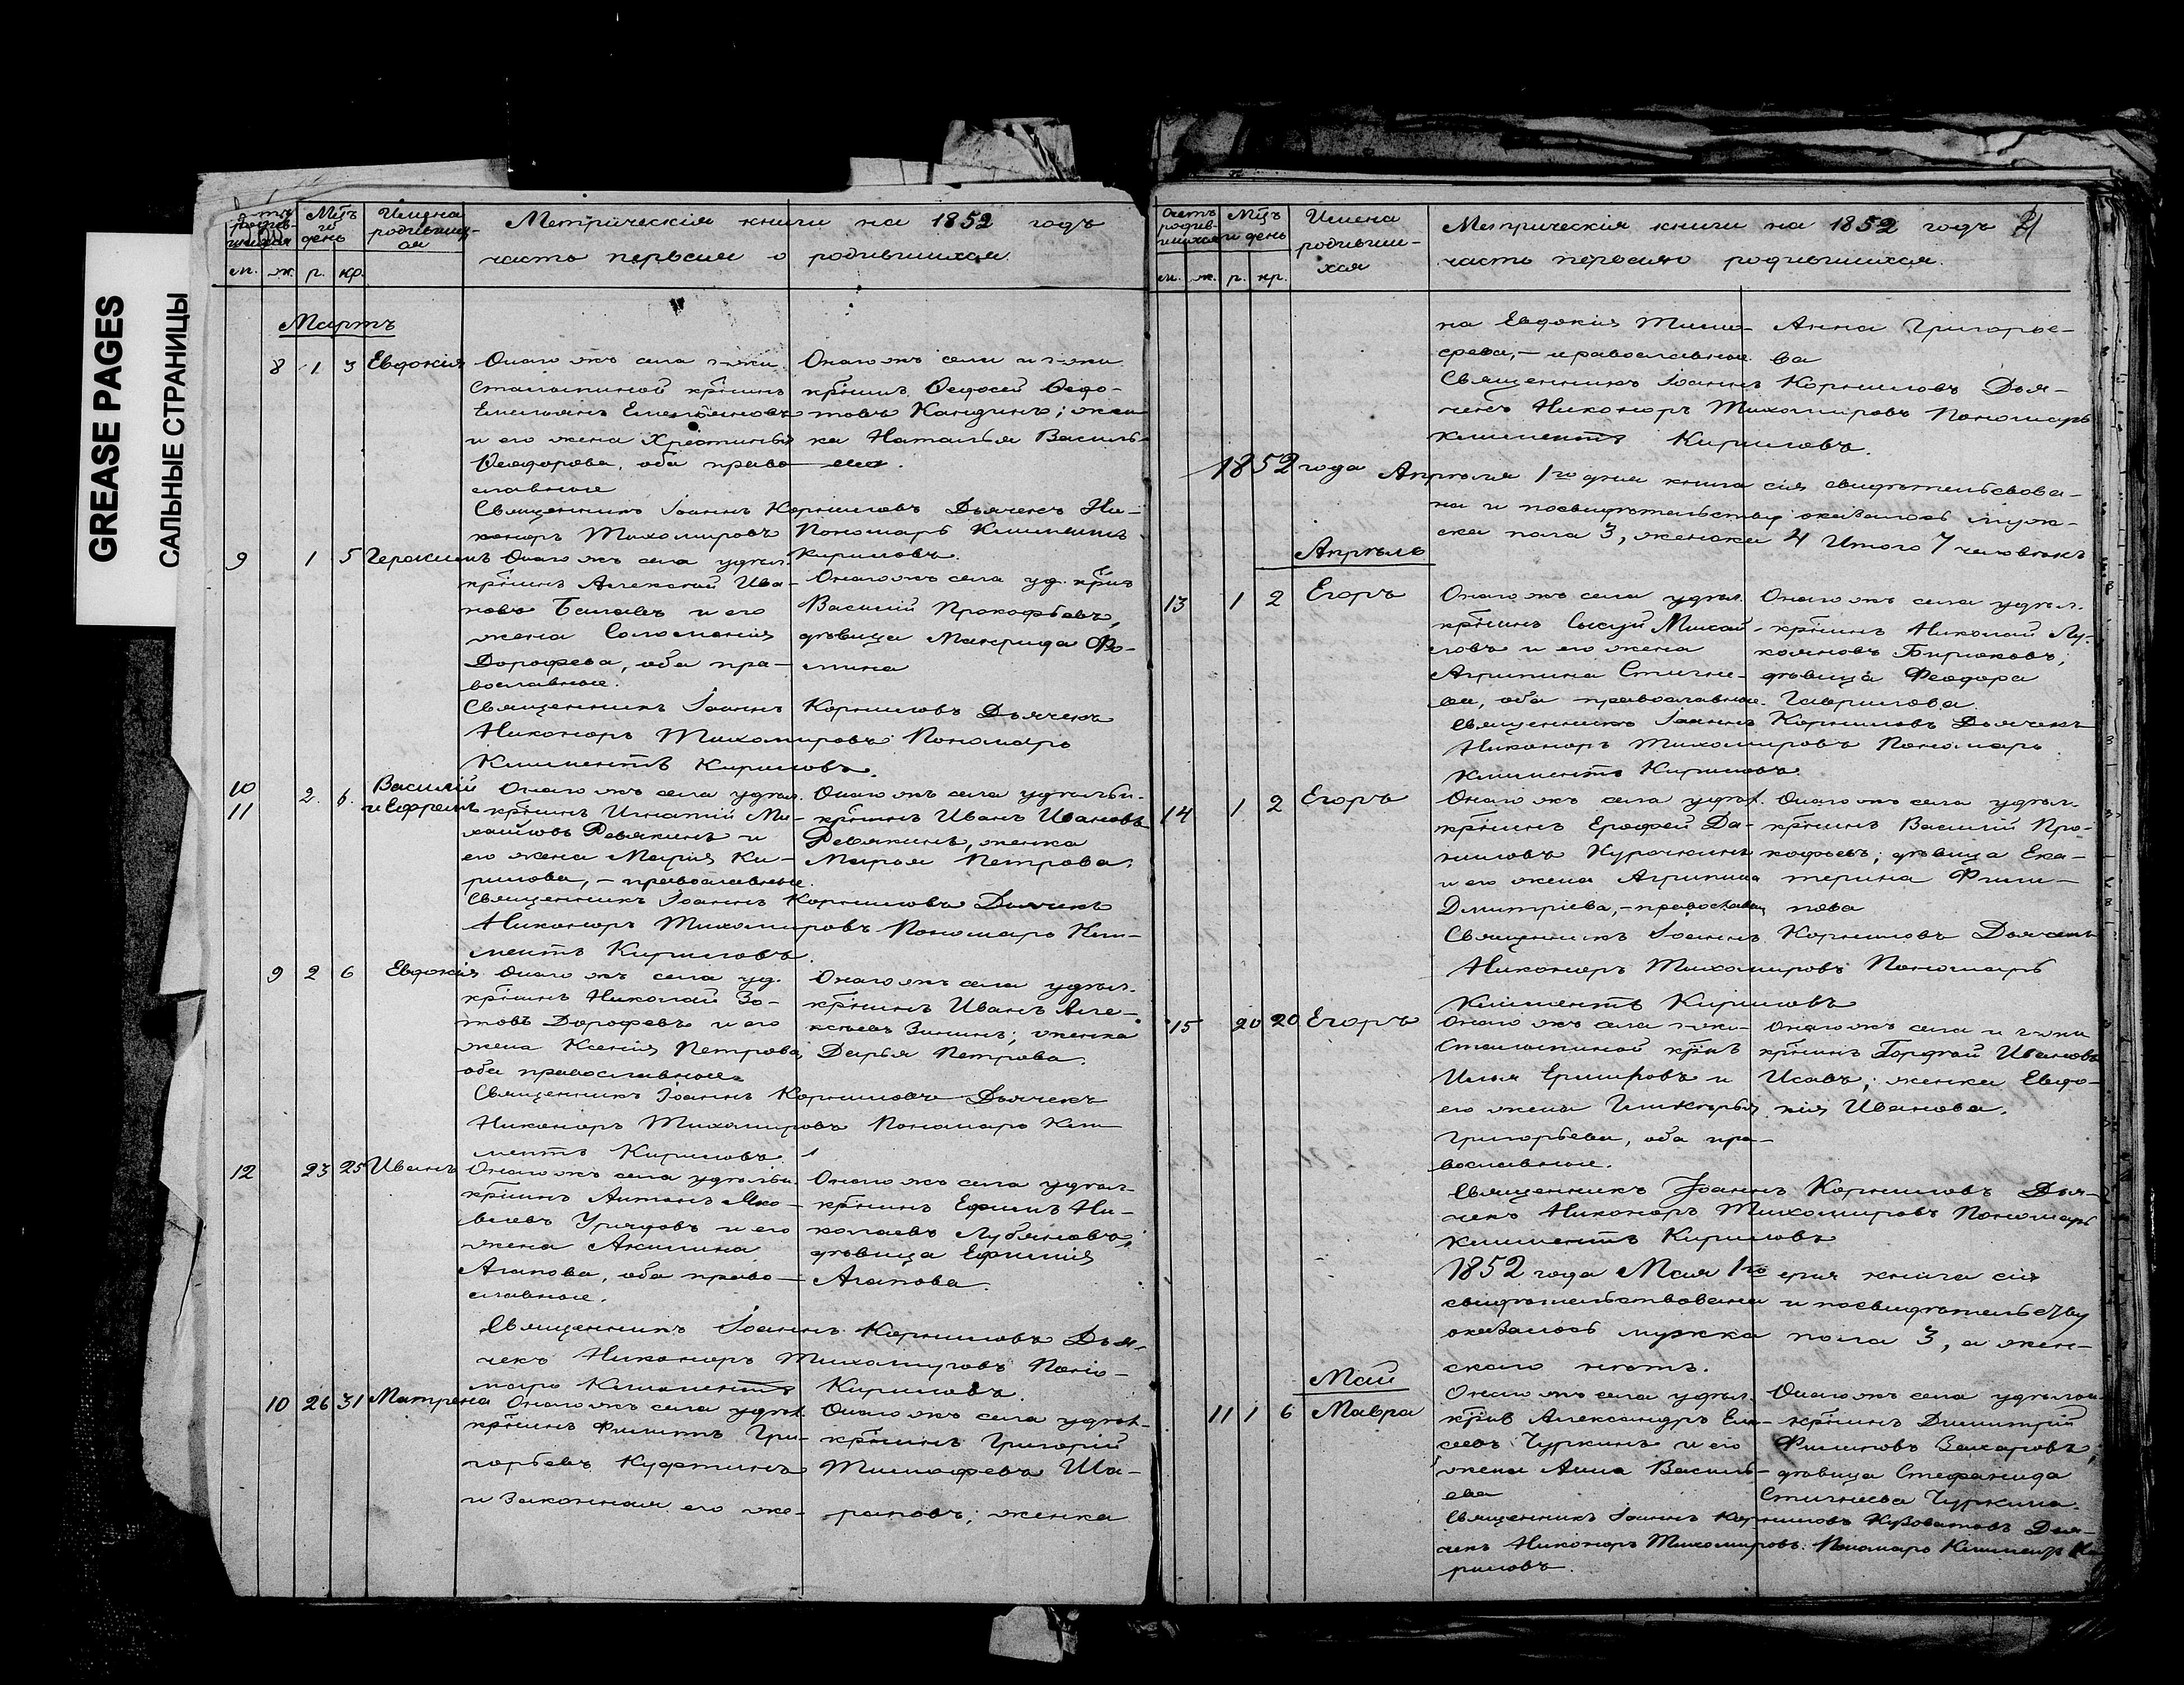 GREASE PAGES
САЛЬНЫЕ СТРАНИЦЫ
Мцъ и день
Имена родившихся
Метрическія книги на 1852 годъ
часть первая о родившихся.
м. ж. р. кр.
Мартъ
8 1 3 Евдокія
Онаго жъ села г-жи
Столыпиной крнинъ
Емельянъ Емельяновъ
и его жена Христинья
Ѳеодорова, оба право-
славные
Онаго жъ села и г-жи
крнинъ Ѳедосей Ѳедо-
товъ Кандинъ; жен-
ка Наталья Василь-
ева.
Священникъ Іоаннъ Корниловъ Дьячекъ Ни-
каноръ Тихомировъ Пономарь Климентъ
Кириловъ.
9 1 5 Герасимъ
Онаго жъ села удѣл.
крнинъ Алексѣй Ива-
новъ и его
жена Соломонія
Дорофеева, оба пра-
вославные.
Онаго жъ села уд. крнинъ
Василій Прокофьевъ,
дѣвица Макрида Фо-
мина
Священникъ Іоаннъ Корниловъ Дьячекъ
Никаноръ Тихомировъ Пономарь
Климентъ Кириловъ.
10
11 2 6 Василій
и Ефремъ
Онаго жъ села удѣл.
крнинъ Игнатій Ми-
хайловъ Ревякинъ и
его жена Марія Ки-
рилова, - православные.
Онаго жъ села удѣльн.
крнинъ Иванъ Ивановъ
Ревякинъ, женка
Марья Петрова.
Священникъ Іоаннъ Корниловъ Дьячекъ
Никаноръ Тихомировъ Пономарь Кли-
ментъ Кириловъ.
9 2 6 Евдокія
Онаго жъ села уд.
крнинъ Николай Зо-
товъ Дорофевъ и его
жена Ксенія Петрова,
оба православные
Онаго жъ села удѣл.
крнинъ Иванъ Але-
ксѣевъ Зининъ; женка
Дарья Петрова.
Священникъ Іоаннъ Корниловъ Дьячекъ
Никаноръ Тихомировъ Пономарь Кли-
ментъ Кириловъ.
12 23 25 Иванъ
Онаго жъ села удѣльн.
крнинъ Антонъ Яко-
влевъ Урядовъ и его
жена Акилина
Агапова, оба право-
славные.
Онаго жъ села удѣл.
крнинъ Ефимъ Ни-
колаевъ Лубяновъ,
дѣвица Ефимія
Агапова.
Священникъ Іоаннъ Корниловъ Дья-
чекъ Никаноръ Тихомировъ Поно-
марь Климентъ Кириловъ.
10 26 31 Матрена
Онаго жъ села удѣл.
крнинъ Филиппъ Гри-
горьевъ Куфтинъ
и законная его же-
Онаго жъ села удѣл.
крнинъ Григорій
Тимофевъ Ша-
рановъ; женка
Счетъ родив-
шихся
Мцъ и день
Имена
родивши-
хся
Метрическія книги на 1852 годъ
часть первая о родившихся.
м. ж. р. кр.
на Евдокія Тимо-
феева, - православные
Анна Григорье-
ва
Священникъ Іоаннъ Корниловъ Дья-
чекъ Никаноръ Тихомировъ Пономарь
Климентъ Кириловъ.
1852 года Апрѣля 1го дня книга сія свидѣтельствова-
на и посвидѣтельству оказалось муж-
ска пола 3, женска 4 Итого 7 человѣкъ
Апрѣль
13 1 2 Егоръ
Онаго жъ села удѣл.
крнинъ Сысуй Михай-
ловъ и его жена
Агрипина Стигне-
ва, оба православные.
Онаго жъ села удѣл.
крнинъ Николай Лу-
кояновъ Бирюковъ;
дѣвица Феодора
Гаврилова.
Священникъ Іоаннъ Корниловъ Дьячекъ
Никаноръ Тихомировъ Пономарь
Климентъ Кириловъ.
14 1 2 Егоръ
Онаго жъ села удѣл.
крнинъ Ерофей Да-
ниловъ Курочкинъ
и его жена Агрипина
Дмитріева, - православн
Онаго жъ села удѣл.
крнинъ Василій Про-
кофьевъ; дѣвица Ека-
терина Фили-
пова
Священникъ Іоаннъ Корниловъ Дьячекъ
Никаноръ Тихомировъ Пономарь
Климентъ Кириловъ
15 20 20 Егоръ
Онаго жъ села г-жи
Столыпиной крнинъ
Илья и
его жена Гликерья
Григорьева, оба пра-
вославные.
Онаго жъ села и г-жи
крнинъ Гордѣй Ивановъ
Исавъ; женка Евдо-
кія Иванова.
Священникъ Іоаннъ Корниловъ Дья-
чекъ Никаноръ Тихомировъ Пономарь
Климентъ Кириловъ
1852 года Мая 1го дня книга сія
свидѣтельствована и посвидѣтельству
оказалось мужска пола 3, а жен-
скаго нѣтъ.
Май
11 1 6 Мавра
Онаго жъ села удѣл.
крнинъ Александръ Ели-
сеевъ Чуркинъ и его
жена Анна Василь-
ева
Онаго жъ села удѣльн
крнинъ Димитрій
Филиповъ Захаровъ;
дѣвица Стефанида
Стигнеева Чуркина.
Священникъ Іоаннъ Корниловъ Дья-
чекъ Никаноръ Тихомировъ. Пономарь Климентъ Ки-
риловъ.